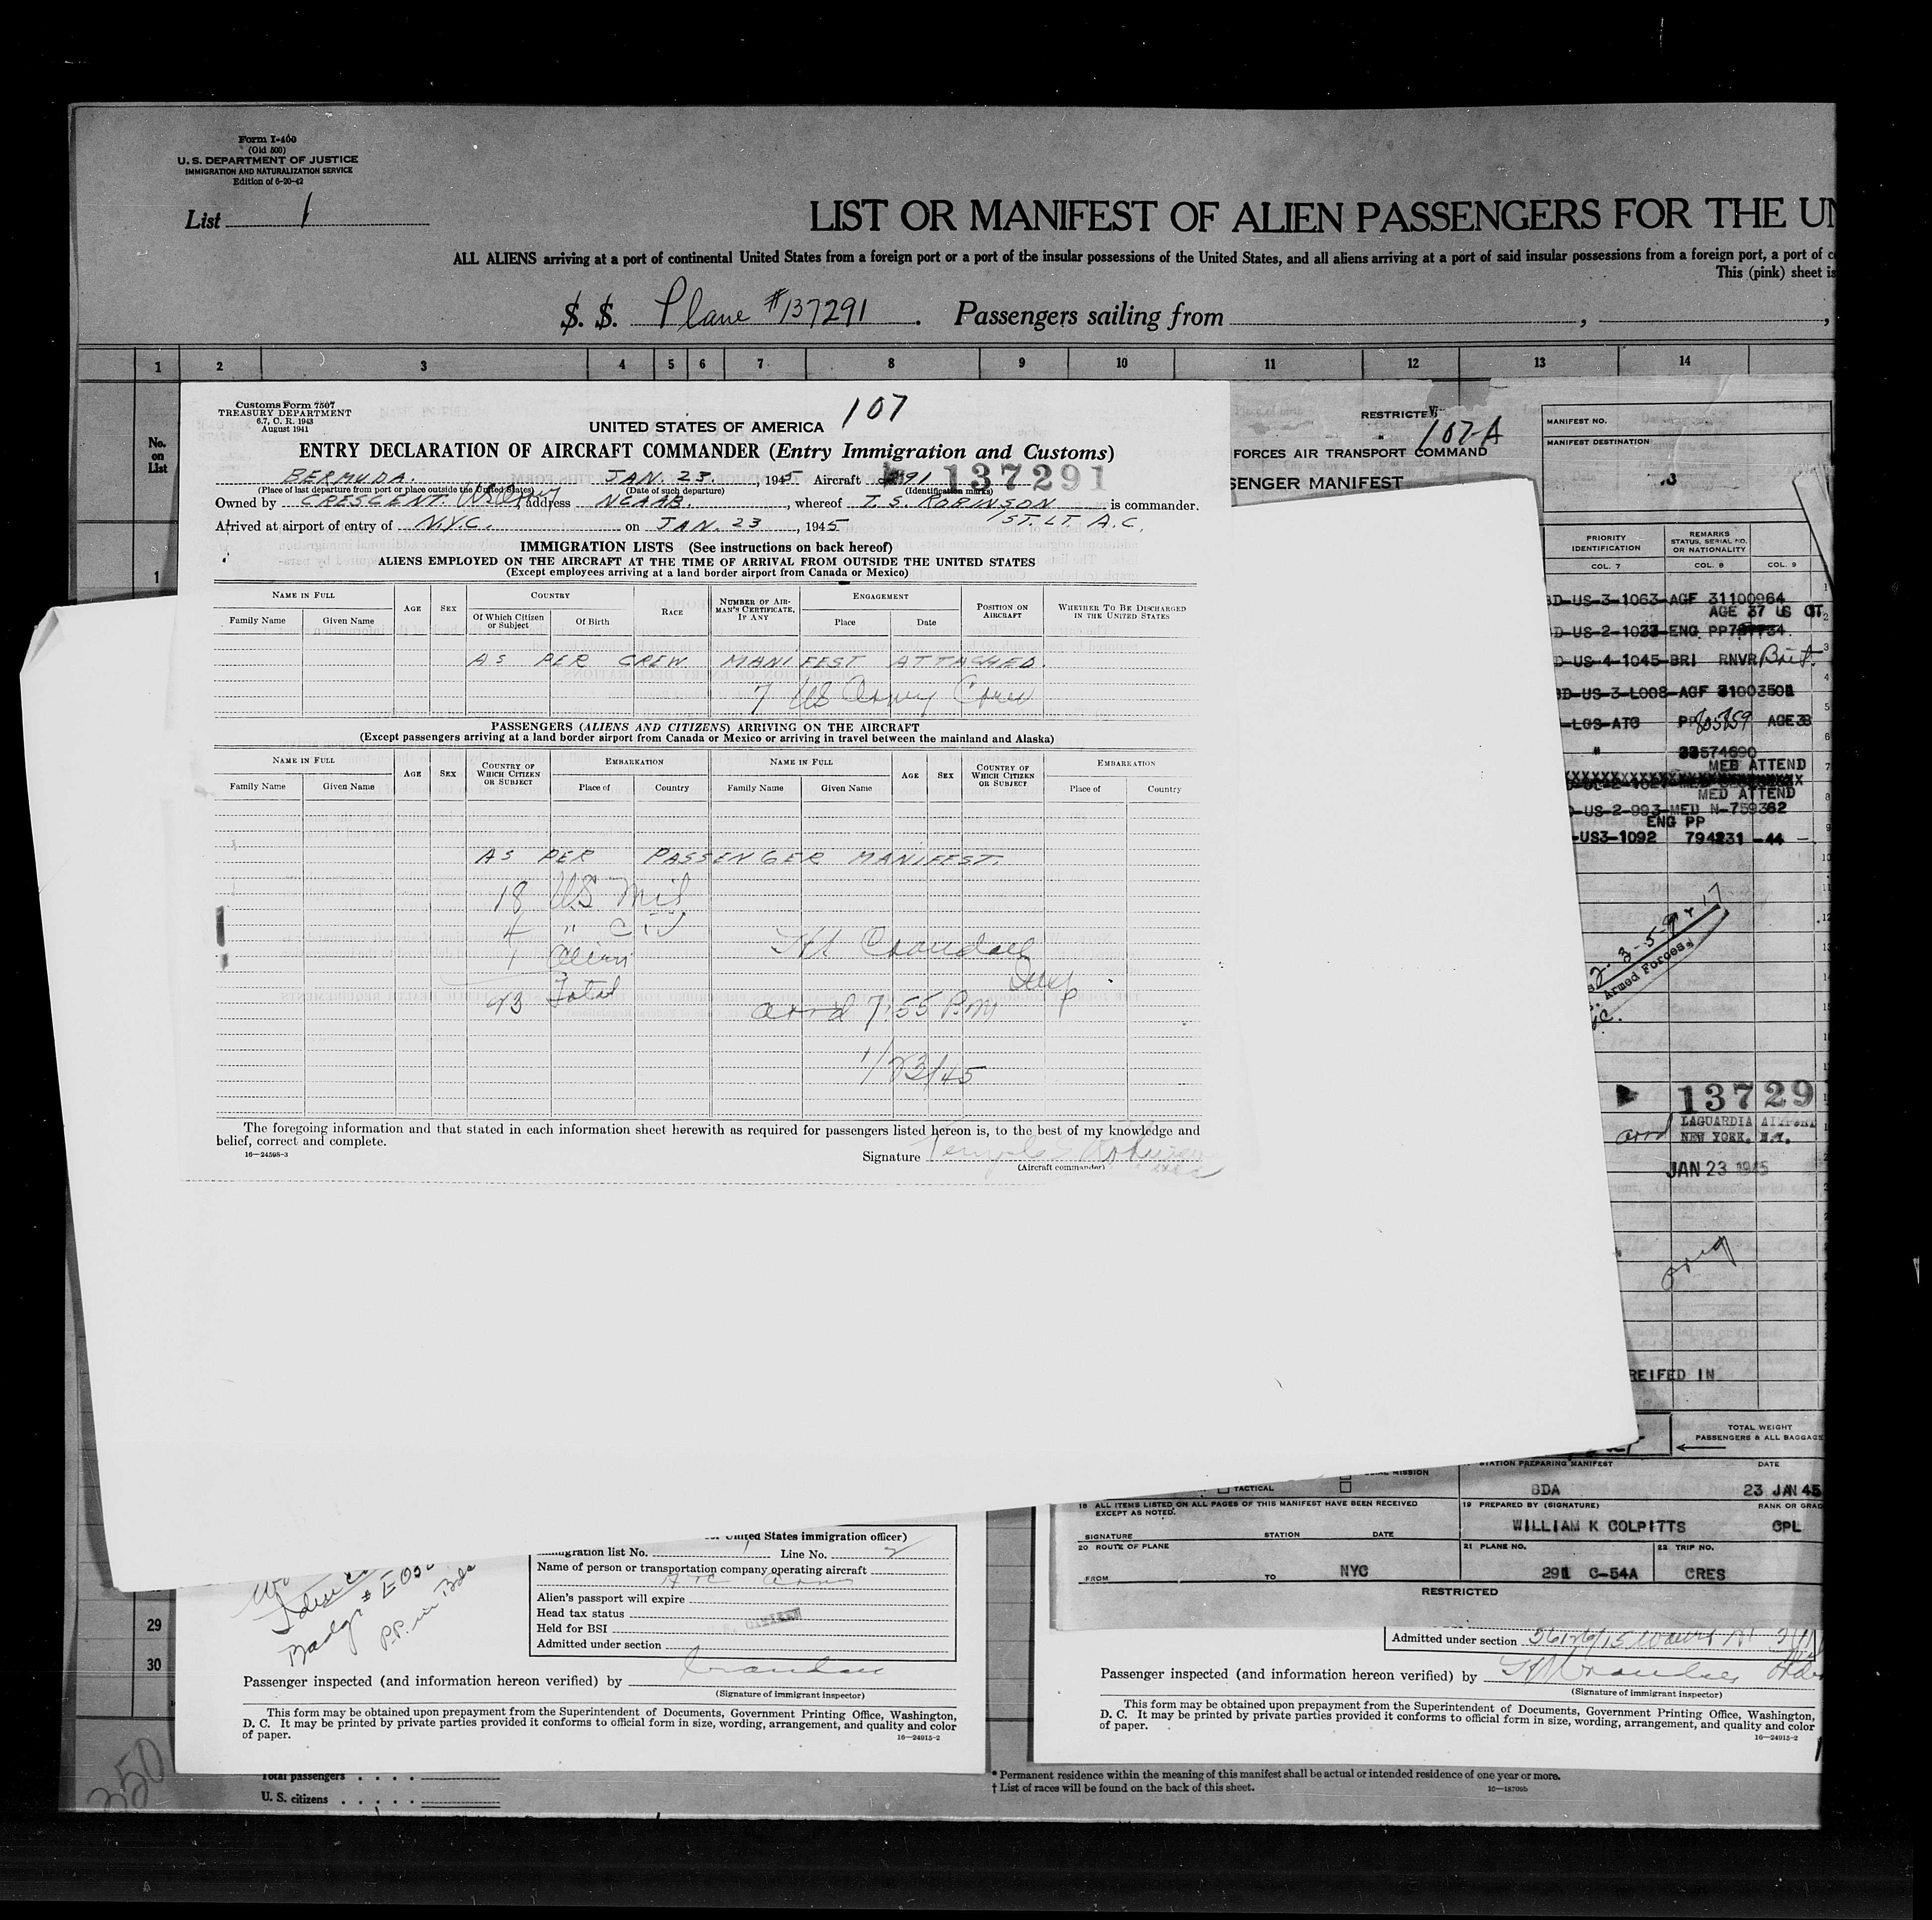 Form I-400
(Old 500)
U. S. DEPARTMENT OF JUSTICE
IMMIGRATION AND NATURALIZATION SERVICE
Edition of 6-20-42
List 1
LIST OR MANIFEST OF ALIEN PASSENGERS FOR THE UN
ALL ALIENS arriving at a port of continental United States from a foreign port or a port of the insular possessions of the United States, and all aliens arriving at a port of said insular possessions from a foreign port, a port of
This (pink) sheet is
S. S. Plane #137291 . Passengers sailing from , ,
1 2 3 4 5 6 7 8 9 10 11 12 13 14
No. on List
1
Customs Form 7507
TREASURY DEPARTMENT
6.7, C. R. 1943
August 1941
107
UNITED STATES OF AMERICA
ENTRY DECLARATION OF AIRCRAFT COMMANDER (Entry Immigration and Customs)
BERMUDA. JAN. 23. , 1945 Aircraft 291 137291
(Place of last departure from port or place outside the United States) (Date of such departure) (Identification marks)
Owned by CRESCENT. (US Army, address NCAAB. , whereof T. S. ROBINSON is commander.
1ST. LT. A.C.
Arrived at airport of entry of N.Y.C. on JAN. 23 , 1945
IMMIGRATION LISTS (See instructions on back hereof)
ALIENS EMPLOYED ON THE AIRCRAFT AT THE TIME OF ARRIVAL FROM OUTSIDE THE UNITED STATES
(Except employees arriving at a land border airport from Canada or Mexico)
NAME IN FULL AGE SEX COUNTRY RACE NUMBER OF AIRMAN'S CERTIFICATE, IF ANY ENGAGEMENT POSITION ON AIRCRAFT WHETHER TO BE DISCHARGED IN THE UNITED STATES
Family Name Given Name Of Which Citizen or Subject Of Birth Place Date
AS PER CREW MANIFEST ATTACHED.
7 US Army Crew
PASSENGERS (ALIENS AND CITIZENS) ARRIVING ON THE AIRCRAFT
(Except passengers arriving at a land border airport from Canada or Mexico or arriving in travel between the mainland and Alaska)
NAME IN FULL AGE SEX COUNTRY OF WHICH CITIZEN OR SUBJECT EMBARKATION NAME IN FULL AGE SEX COUNTRY OF WHICH CITIZEN OR SUBJECT EMBARKATION
Family Name Given Name Place of Country Family Name Given Name Place of Country
AS PER PASSENGER MANIFEST.
18 US Mil
4 " Civ
1 Alien
23 Total
Crandall
Insp
arrd 7:55 P.M
1/23/45
The foregoing information and that stated in each information sheet herewith as required for passengers listed hereon is, to the best of my knowledge and
belief, correct and complete.
16—24598-3
Signature Temple S Robinson
(Aircraft commander)
RESTRICTED
107-A
FORCES AIR TRANSPORT COMMAND
SENGER MANIFEST
MANIFEST NO.
MANIFEST DESTINATION
PRIORITY IDENTIFICATION REMARKS STATUS, SERIAL NO. OR NATIONALITY
COL. 7 COL. 8 COL. 9
D-US-3-1063-AGF 31100964
AGE 37 US CT
D-US-2-1033-ENG PP
D-US-4-1045-BRI RNVR Brit.
D-US-3-L008-AGF 31003501
-LGS-ATC PP AGE38
" 33574690
MED ATTEND
MED ATTEND
-US-2-993-MED N-759362
ENG PP
-US3-1092 794231 -44 -
Armed Forces.
13729
arrd LAGUARDIA AIRPORT
NEW YORK, N.Y.
JAN 23 1945
orig
REIFED IN
TOTAL WEIGHT
PASSENGERS & ALL BAGGAGE
MISSION
TACTICAL
STATION PREPARING MANIFEST DATE
BDA 23 JAN 45
18 ALL ITEMS LISTED ON ALL PAGES OF THIS MANIFEST HAVE BEEN RECEIVED EXCEPT AS NOTED.
19 PREPARED BY (SIGNATURE) RANK OR GRAD
WILLIAM K COLPITTS CPL
SIGNATURE STATION DATE
20 ROUTE OF PLANE 21 PLANE NO. 22 TRIP NO.
FROM TO NYC 291 C-54A CRES
RESTRICTED
United States immigration officer)
gration list No. 1 Line No. 2
Name of person or transportation company operating aircraft
ATC
Alien's passport will expire
Head tax status
Held for BSI
Admitted under section
CITIZEN
Badge #
P.P. in Bda
29
30
Passenger inspected (and information hereon verified) by Crandall
(Signature of immigrant inspector)
This form may be obtained upon prepayment from the Superintendent of Documents, Government Printing Office, Washington,
D. C. It may be printed by private parties provided it conforms to official form in size, wording, arrangement, and quality and color
of paper.
16—24915-2
Admitted under section
Passenger inspected (and information hereon verified) by Crandall
(Signature of immigrant inspector)
This form may be obtained upon prepayment from the Superintendent of Documents, Government Printing Office, Washington,
D. C. It may be printed by private parties provided it conforms to official form in size, wording, arrangement, and quality and color
of paper.
16—24915-2
350
Total passengers . . . .
U. S. citizens . . . . .
* Permanent residence within the meaning of this manifest shall be actual or intended residence of one year or more.
† List of races will be found on the back of this sheet.